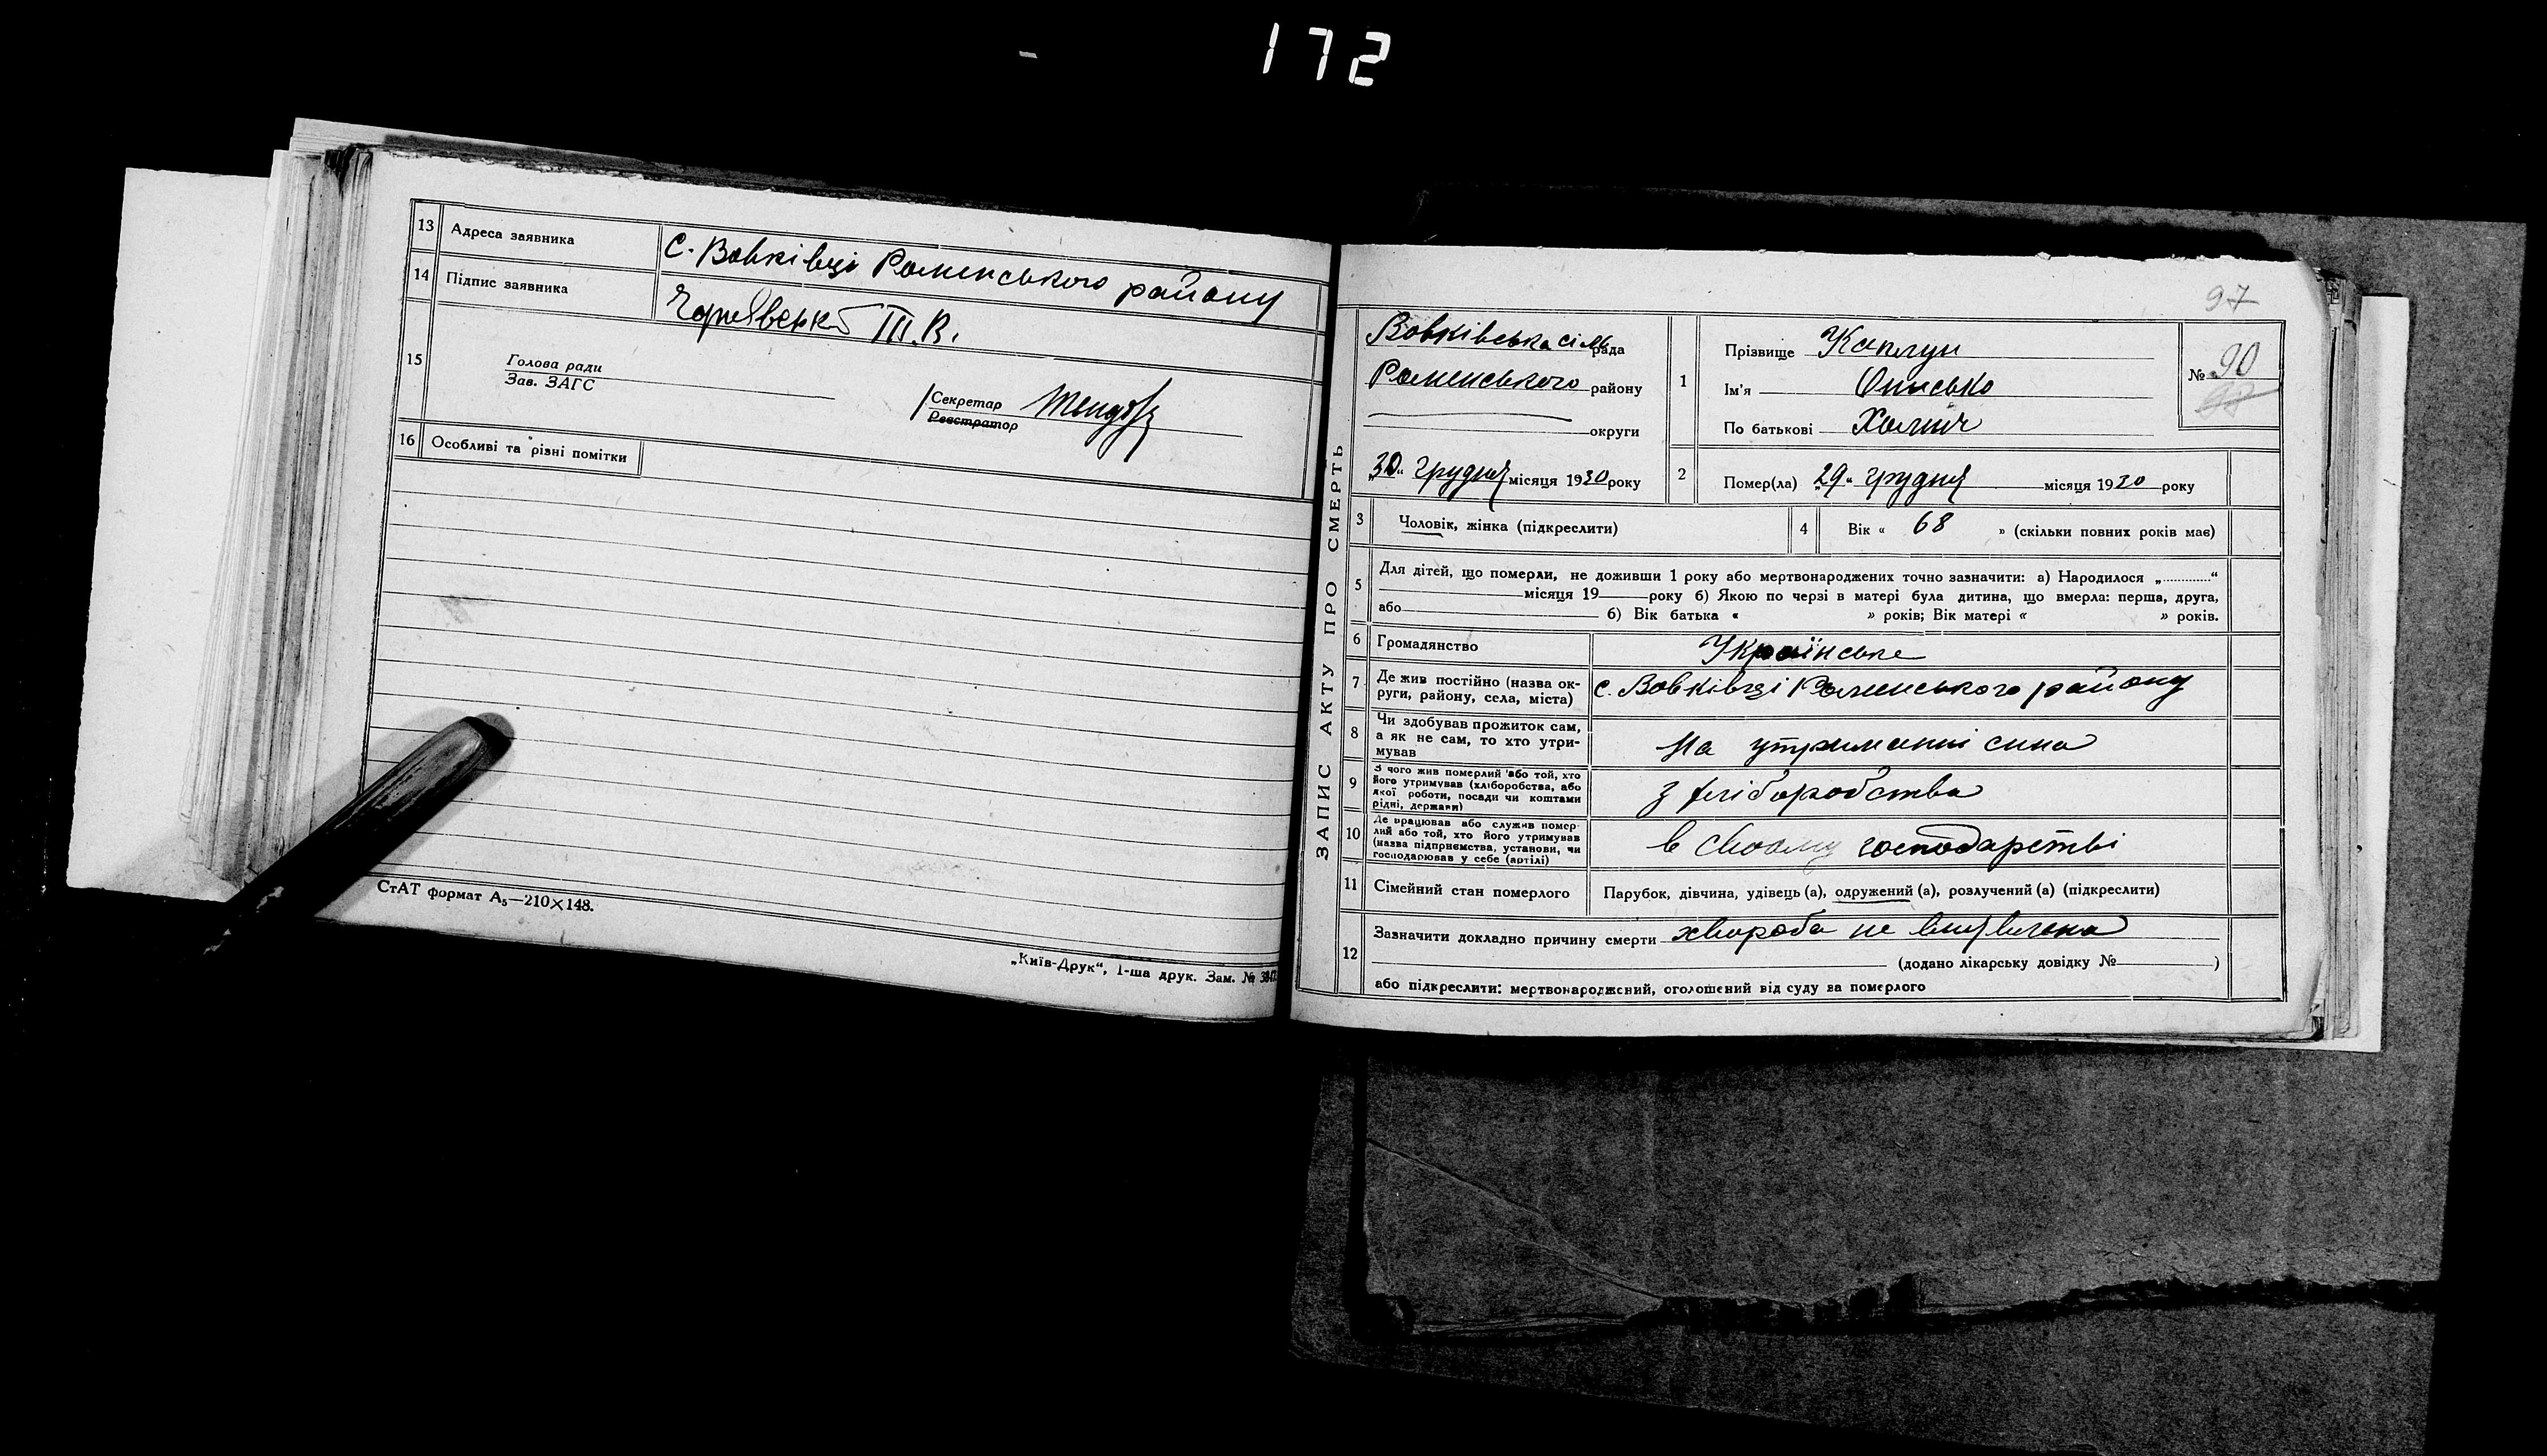 172
13 Адреса заявника С. Вовківці Роменського району
14 Підпис заявника
15 Голова ради
Зав. ЗАГС
Секретар
Реєстратор
16 Особливі та різні помітки
СтАТ формат А5—210×148.
„Київ-Друк“, 1-ша друк. Зам. №
97
ЗАПИС АКТУ ПРО СМЕРТЬ
Вовківська сіль рада
Роменського району
округи
„30“ Грудня місяця 1930 року
1 Прізвище Каплун
Ім'я Описько
По батькові
№ 90
2 Помер(ла) „29“ грудня місяця 1930 року
3 Чоловік, жінка (підкреслити)
4 Вік « 68 » (скільки повних років має)
5 Для дітей, що померли, не доживши 1 року або мертвонароджених точно зазначити: а) Народилося „.............“
місяця 19 року б) Якою по черзі в матері була дитина, що вмерла: перша, друга,
або б) Вік батька « » років; Вік матері « » років.
6 Громадянство Українське
7 Де жив постійно (назва ок-
руги, району, села, міста) с. Вовківці Роменського району
8 Чи здобував прожиток сам,
а як не сам, то хто утри-
мував На утриманні сина
9 З чого жив померлий або той, хто
його утримував (хліборобства, або
якої роботи, посади чи коштами
рідні, держави) з хліборобства
10 Де працював або служив помер-
лий або той, хто його утримував
(назва підприємства, установи, чи
господарював у себе (артілі) в своєму господарстві
11 Сімейний стан померлого Парубок, дівчина, удівець (а), одружений (а), розлучений (а) (підкреслити)
12 Зазначити докладно причину смерти хвороба не виявлена
(додано лікарську довідку № )
або підкреслити: мертвонароджений, оголошений від суду за померлого